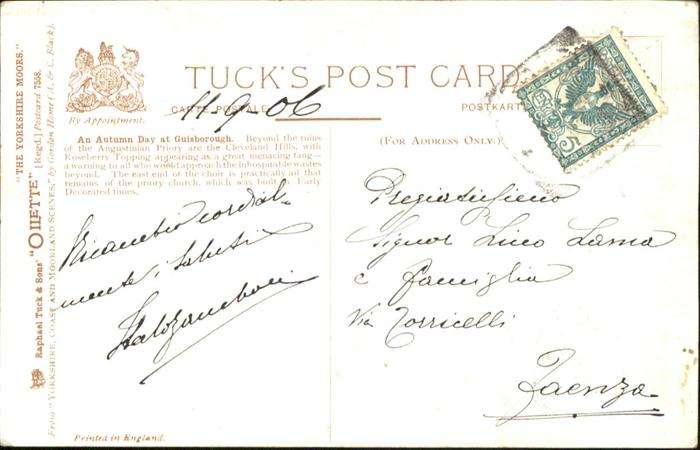 "THE YORKSHIRE MOORS."
Raphael Tuck & Sons' "OILETTE" [Regd.] Postcard 7558.
From "YORKSHIRE, COAST AND MOORLAND SCENES," by Gordon Home (A. & C. Black).
By Appointment.
TUCK'S POST CARD
CARTE POSTALE
POSTKARTE
11-9-06
An Autumn Day at Guisborough. Beyond the ruins
of the Augustinian Priory are the Cleveland Hills, with
Roseberry Topping appearing as a great menacing fang—
a warning to all who would approach the inhospitable wastes
beyond. The east end of the choir is practically all that
remains of the priory church, which was built in Early
Decorated times.
(FOR ADDRESS ONLY.)
Ricambio cordial-
mente i saluti
Pregiatissimo
Signor Lino Lama
e famiglia
Via Torricelli
Faenza
Printed in England.